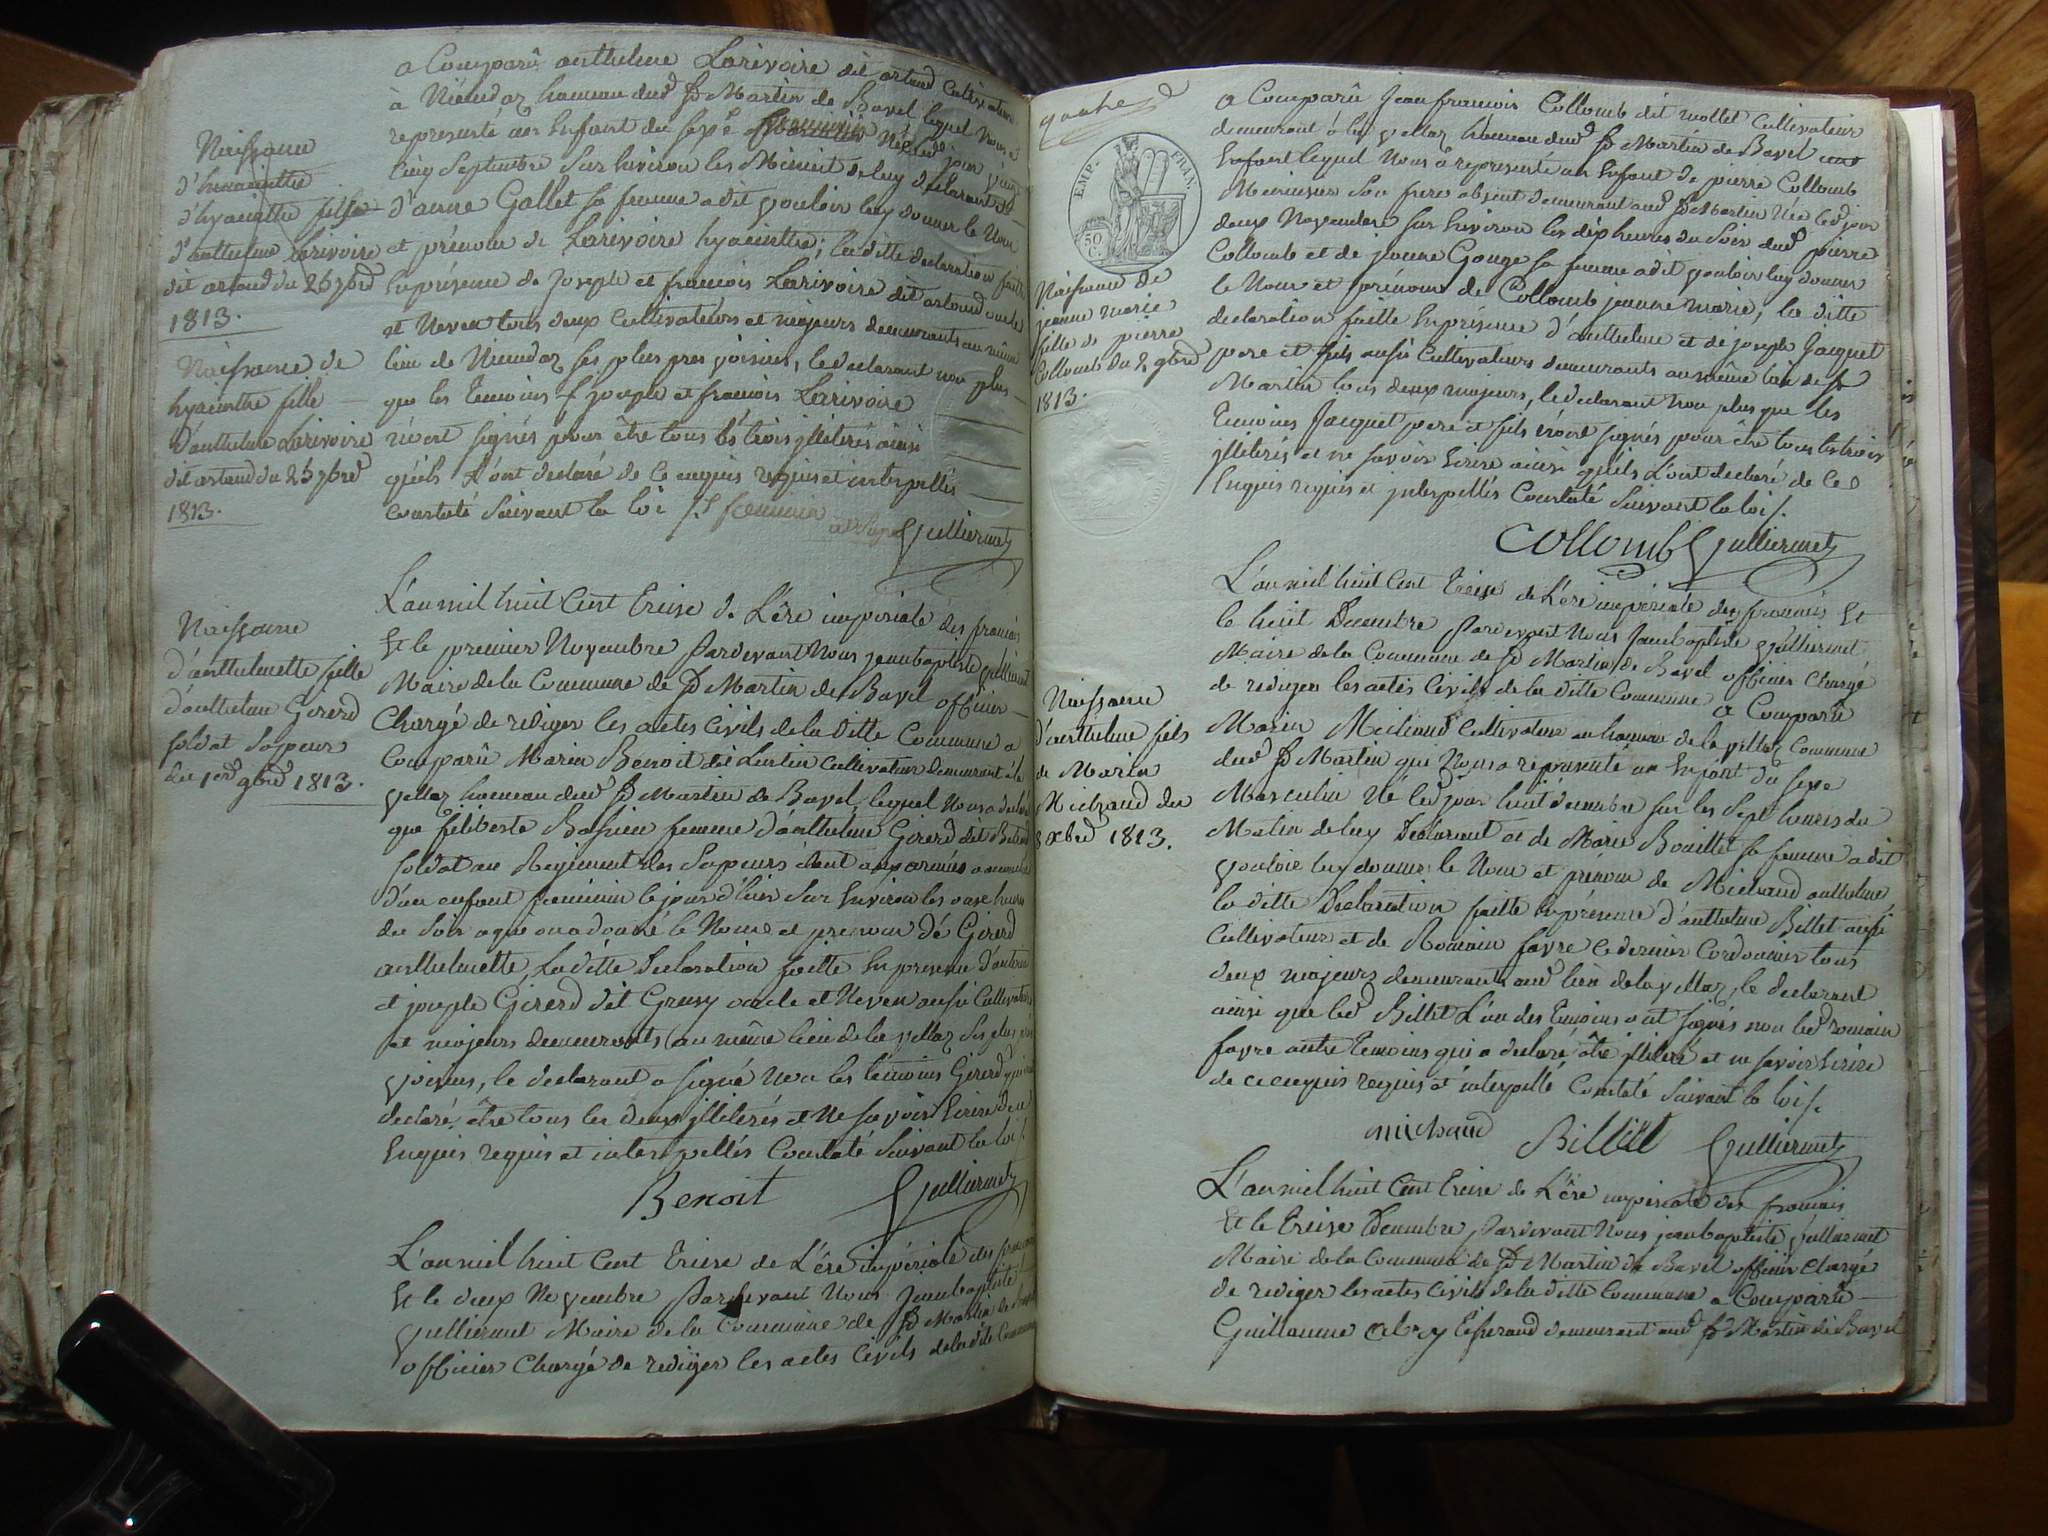 a Comparû anthelme Larivoire dit artaud Cultivateur
à Niendaz hameau dud St Martin de Bavel lequel Nous a
representé un Enfant du sexe feminin Né led jour vingt
Cinq Septembre sur Environ les Minuit de luy declarant et
d'anne Gallet sa femme a dit vouloir luy donner le Nom
et prénom de Larivoire hyacinthe; la ditte declaration faitte
En présence de Joseph et francois Larivoire dit artaud oncle
et Neveu tous deux Cultivateurs et majeurs demeurants au même
lieu de Niendaz ses plus pres voisins, le declarant non plus
que les Temoins joseph et francois Larivoire
n'ont signés pour être tous les trois illiterés ainsi
qu'ils L'ont declaré de Ce enquis requis et interpellés
Constaté Suivant la loi /. feminin
Gulliermet
Naissance
d'hyacinthe
d'hyacinthe fille
d'anthelme Larivoire
dit artaud du 25 7bre
1813.
Naissance de
hyacinthe fille
D'anthelme Larivoire
dit artaud du 25 7bre
1813.
Naissance
d'anthelmette fille
d'anthelme Girerd
soldat Sapeur
du 1er 9bre 1813.
L'an mil huit Cent Treise de L'ère impériale des francais
Et le premier Novembre Pardevant Nous jean baptiste Gulliermet
Maire de la Commune de St Martin de Bavel officier
Chargé de rediger les actes Civils de la ditte Commune a
Comparû Marin Benoit dit Cultivateur demeurant à la
vellaz hameau dud St Martin de Bavel, lequel Nous a declaré
que femme d'anthelme Girerd dit
soldat au Regiment des Sapeurs étant aux armées
d'un enfant feminin le jour d'hier sur Environ les onze heures
du Soir a qui on a donné le Nom et prenom de Girerd
anthelmette, La ditte Declaration faitte En presence
et joseph Girerd dit Grusy oncle et Neveu aussi Cultivateurs
et majeurs demeurants au même lieu de la vellaz ses plus près
voisins, le declarant a signé non les témoins Girerd qui ont
declaré être tous les deux illiterés et Ne savoir Ecrire de ce
Enquis requis et interpellés Constaté Suivant la loi /.
Benoit Gulliermet
L'an mil huit Cent Treise de L'ère impériale des francais
Et le deux Novembre Pardevant Nous Jean baptiste
Gulliermet Maire de la Commune de St Martin de Bavel
officier Chargé de rediger les actes Civils de la ditte Commune
EMP. FRAN.
50 C.
a Comparû Jean francois Collomb dit mollet Cultivateur
demeurant à la vellaz hameau dud St Martin de Bavel
Enfant lequel Nous a representé un Enfant de pierre Collomb
son frere absent demeurant aud St Martin Née led jour
deux Novembre sur Environ les dix heures du Soir dud pierre
Collomb et de jeanne Gouge sa femme a dit vouloir luy donner
le Nom et prénom de Collomb jeanne marie, la ditte
declaration faitte En présence d'anthelme et de joseph Jacquet
pere et fils aussi Cultivateurs demeurants au même lieu de St
Martin tous deux majeurs, le declarant Non plus que les
Temoins Jacquet pere et fils n'ont signés pour être tous les trois
illiterés et ne savoir Ecrire ainsi qu'ils L'ont declaré de Ce
Enquis requis et interpellés Constaté Suivant la loi /.
Collomb Gulliermet
Naissance de
jeanne marie
fille de pierre
Collomb du 2 9bre
1813.
L'an mil huit Cent Treise de L'ère impériale des francais Et
le huit Decembre Pardevant Nous Jean baptiste Gulliermet
Maire de la Commune de St Martin de Bavel officier Chargé
de rediger les actes Civils de la ditte Commune a Comparû
Marin Michaud Cultivateur au hameau de la vellaz Commune
dud St Martin qui Nous a representé un Enfant du sexe
Masculin Né led jour huit decembre sur les Sept heures du
Matin de luy Declarant et de Marie Bouillet sa femme a dit
vouloir luy donner le Nom et prénom de Michaud anthelme
la ditte Declaration faitte En présence d'anthelme Billet aussi
Cultivateur et de Romain favre ce dernier Cordonnier tous
deux majeurs demeurants aud lieu de la vellaz, le declarant
ainsi que led Billet L'un des Temoins ont signés non led romain
favre autre Temoins qui a declaré être illiteré et ne savoir Ecrire
de ce enquis requis et interpellé Constaté Suivant la loi /.
michaud Billet Gulliermet
Naissance
d'anthelme fils
de Marin
Michaud du
8 xbre 1813.
L'an mil huit Cent Treise de L'ère impériale des francais
Et le Treise Decembre Pardevant Nous jean baptiste Gulliermet
Maire de la Commune de St Martin de Bavel officier Chargé
de rediger les actes Civils de la ditte Commune a Comparû
Guillaume demeurant aud St Martin de Bavel